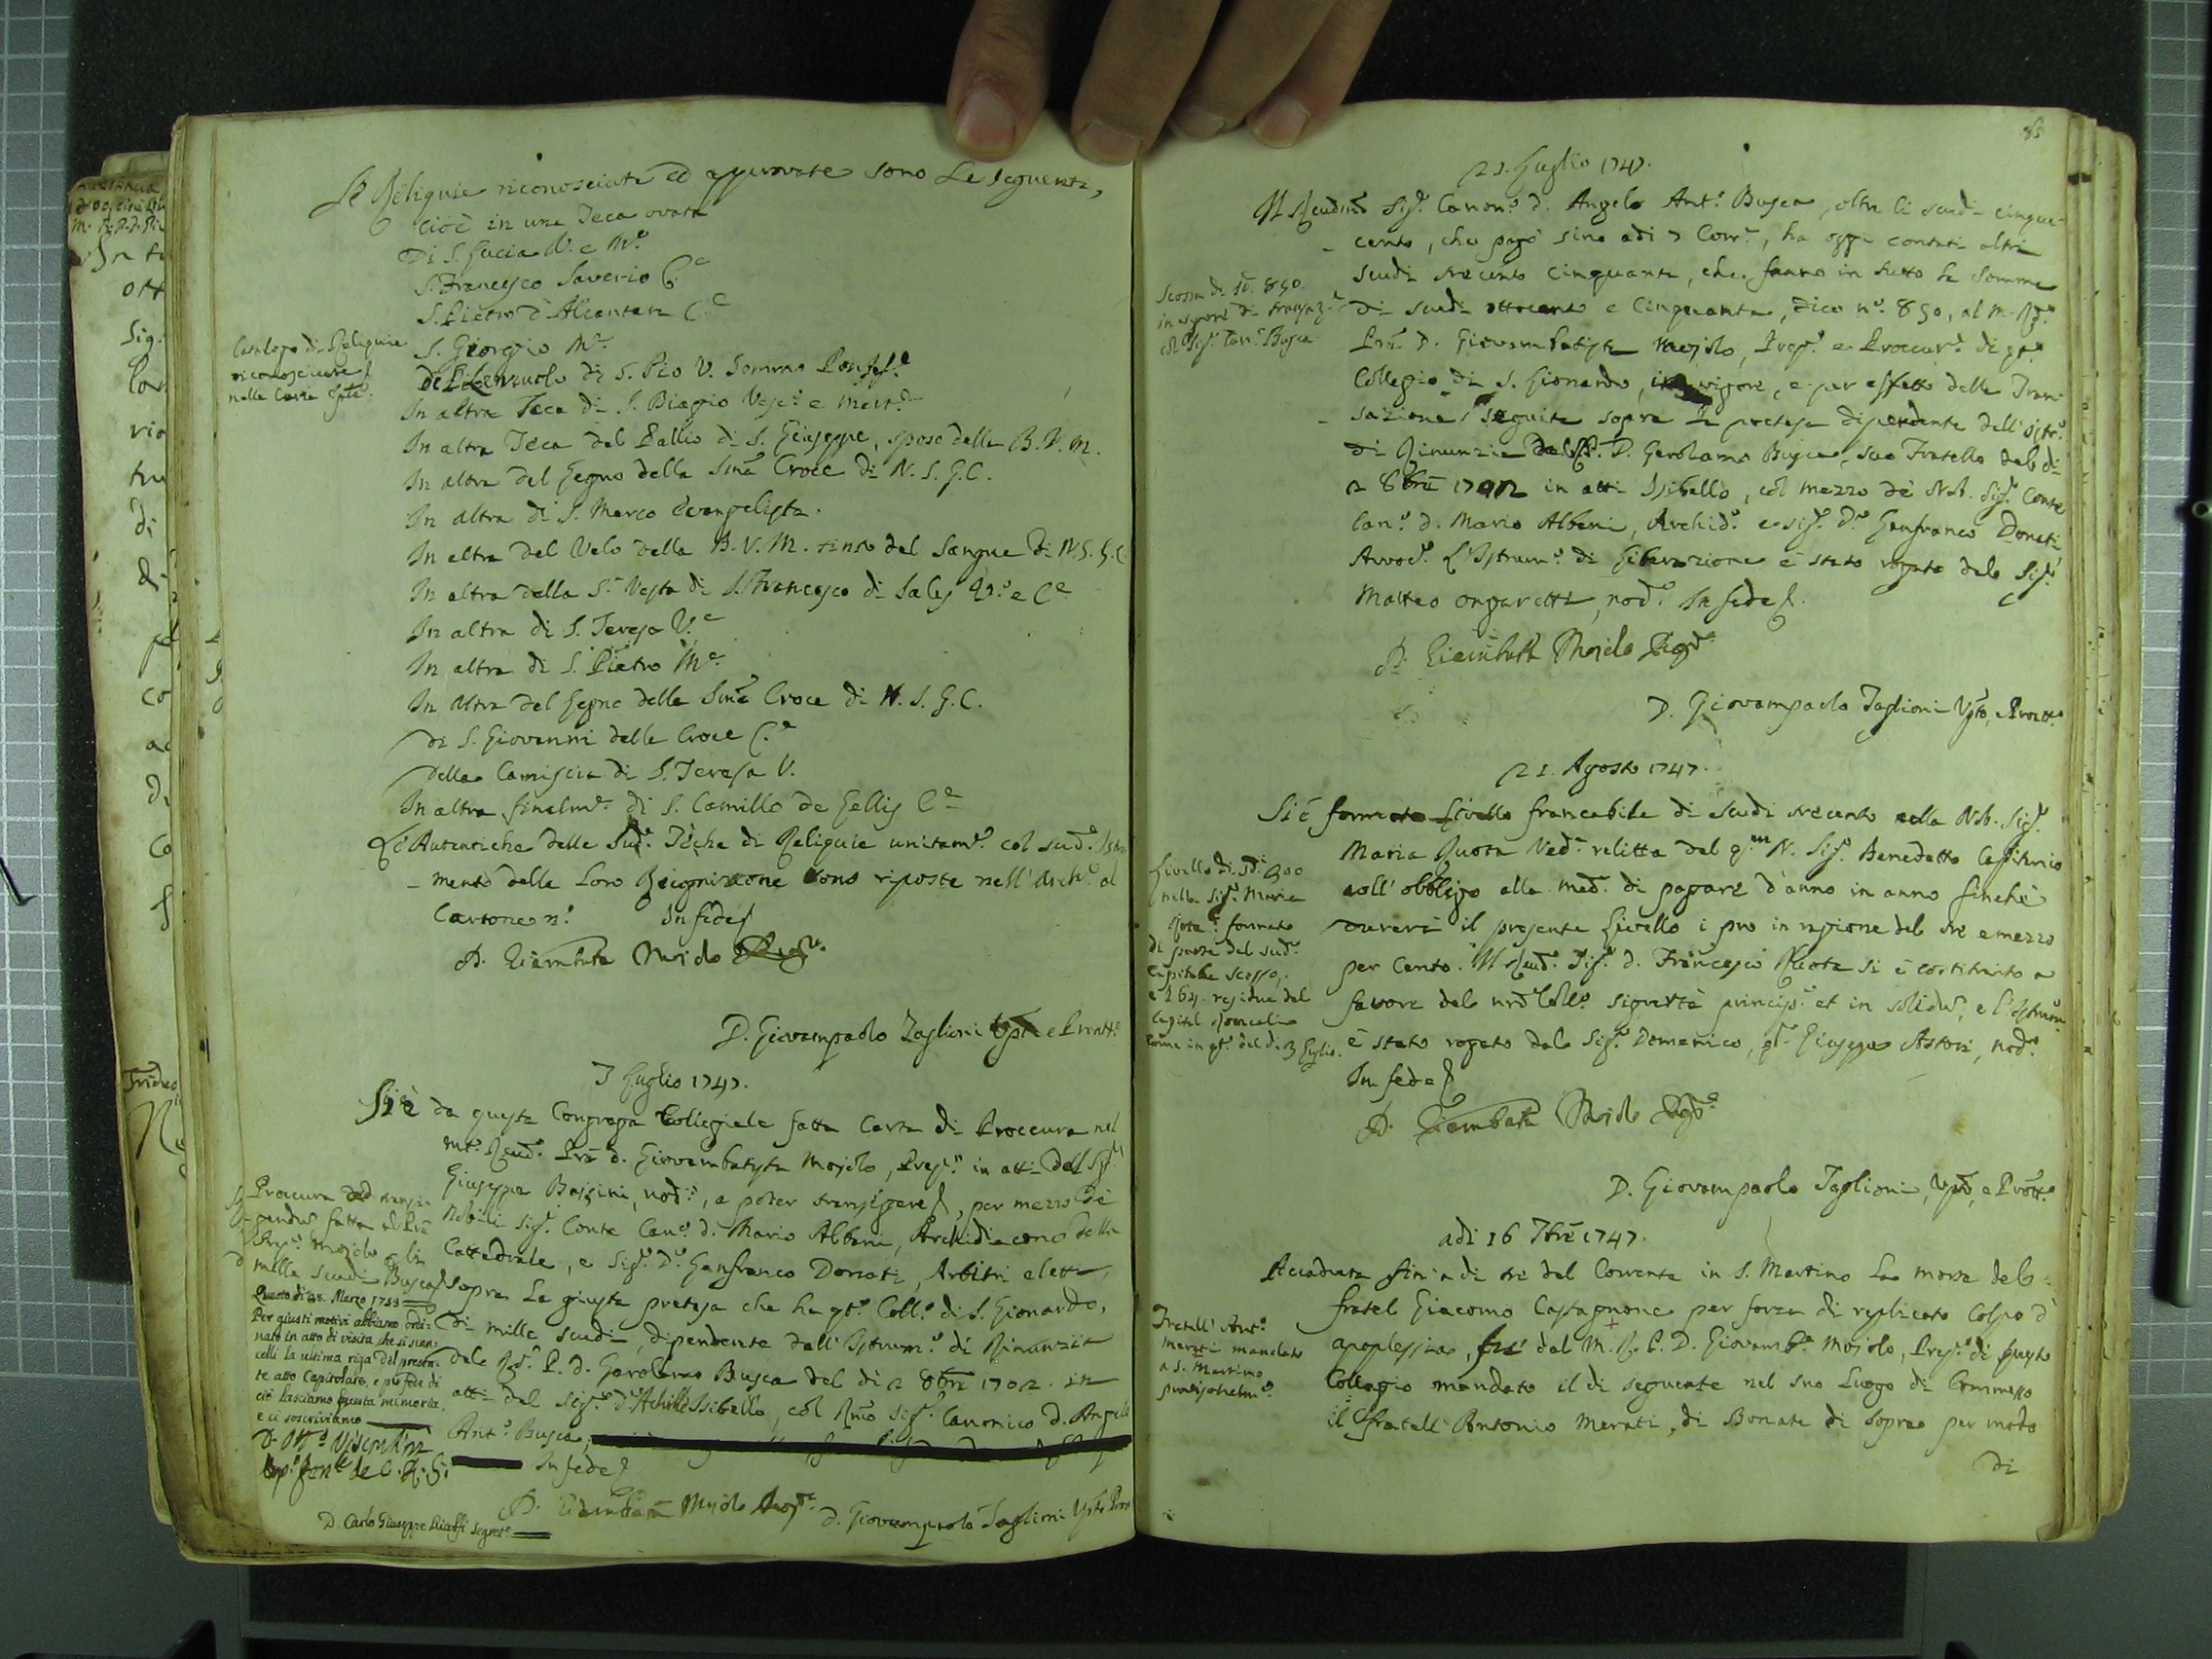 Le Reliquie riconosciute ed approvate sono Le seguenti,
cioè in una Teca ovata
Di S. Lucia V. e Mᵉ
S. Francesco Saverio Cᵉ
S. Pietro d'Alcantara Cᵉ
S. Giorgio Mᵉ
di S. Pio V. Sommo Pontefᵉ
In altra Teca di S. Biagio Vescᵒ e Martᵉ
In altra Teca del Pallio di S. Giuseppe, sposo della B. V. M.
In altra del Legno della Smã Croce di N. S. G. C.
In altra di S. Marco Evangelista.
In altra del Velo della B. V. M. tinto del Sangue di N. S. G. C.
In altra della Sᵃ Vesta di S. Francesco di Sales Vᵒ e Cᵉ
In altra di S. Teresa Vᵉ
In altra di S. Pietro Mᵉ
In altra del Legno della Smã Croce di N. S. G. C.
di S. Giovanni della Croce Cᵉ
della Camiscia di S. Teresa V.
In altra finalmᵗᵉ di S. Camillo de Lellis Cᵉ
Le Autentiche delle Sudᵉ Teche di Reliquie unitamᵗᵉ col sudᵒ Istru-
mento delle Loro Recognizione sono riposte nell' Archᵒ al
Cartone nᵒ In fede
D. Giambatta Mojolo
D. Giovampaolo Taglioni e
Catalogo di Reliquie
riconosciute
nelle
7 Luglio 1747.
Si è da questa Congrega Collegiale fatta Carta di Proccura nel
Mᵗᵒ Reudᵒ Prē d. Giovambatista Mojolo, Prepᵗᵒ in atti del Sigʳ
Giuseppe Bassini, nodᵒ, a poter transigere, per mezzo de
Nobili Sigʳ Conte Canᶜᵒ d. Mario Albani, Archidiacono della
Cattedrale, e Sigʳ Dʳ Ganfranco Donati, Arbitri eletti,
sopra La giusta pretesa che ha qᵗᵒ Collᵒ di S. Lionardo,
di mille scudi, dipendente dall' Istrumᵗᵒ di Rinunzia
dal P. d. Gerolamo Busca del dì 2 8brē 1702. in
atti del Sigʳ Dʳ Achille Isibello, col Rmõ Sigʳ Canonico d. Angelo
Antᵒ Busca
In fede
D. Giambatta Mojolo D. Giovampaolo Taglioni
Proccura ad transi-
gendum fatta al Prē
Prepᵗᵒ Mojolo li
mille scudi Busca
Questo dì 28. Marzo 1753
Per giusti motivi abbiamo ordi-
nato in atto di visita che si can-
celli la ultima riga del presen-
te atto Capitolare, e per fede di
ciò lasciamo questa memoria,
e ci soscriviamo
D. Carlo Giuseppe Segretᵒ
85
21. Luglio 1747.
Il Reudmõ Sigʳ Canonᶜᵒ d. Angelo Antᵒ Busca, oltre li scudi cinque-
cento, che pagò sino adi 7 Corrᵉ, ha oggi contati altri
scudi trecento cinquanta, che fanno in tutto la somma
di scudi ottocento e cinquanta, dico nᵒ 850, al M. Rdᵒ
Prē D. Giovambatista Mojolo, Prepᵗᵒ e Proccurᵉ di qᵗᵒ
Collegio di S. Lionardo, in vigore, e per effetto della Tran-
sazione seguita sopra la pretesa dipendente dall' Istrᵒ
di Rinunzia del P. D. Gerolamo Busca, suo Fratello del dì
2 8brē 1702 in atti Isibello, col mezzo de Nob. Sigʳ Conte
Canᶜᵒ d. Mario Albani, Archidᵒ e Sigʳ Dʳ Ganfranco Donati
Avvodᵒ L'Istrumᵗᵒ di Liberazione è stato rogato dal Sigʳ
Matteo Ongaretti, nodᵒ In fede.
D. Giambatta Mojolo
D. Giovampaolo Taglioni
Scossa di sᵈ 850.
in vigore di transazᵉ
col Sigʳ Canᶜᵒ Busca
21. Agosto 1747.
Si è formato Livello francabile di scudi trecento colla Nob. Sigʳᵃ
Maria Quota Vedᵃ relitta del qᵐ N. Sigʳ Benedetto
coll' obbligo alla medᵃ di pagare d'anno in anno finchè
durerà il presente Livello i pro in ragione del tre e mezzo
per Cento. Il Reudᵒ Sigʳ d. Francesco si è costituito a
favore del nrõ Collᵒ sigurtà principᵉ et in solidum, e l'Istrum
è stato rogato dal Sigʳ Domenico, qᵐ Giuseppe Astori, nodᵒ
In fede
D. Giambatta Mojolo
D. Giovampaolo Taglioni,
Livello di sᵈ 300
nella Sigʳᵃ Maria
formato
di parte del sudᵒ
Capitale scosso,
residuo del
Capital
come in qᵗᵒ del dì 3 Luglio.
adi 16 7brē 1747.
Accaduta fin' a di tre del Corrente in S. Martino La morte del
fratel Giacomo Castagnone per forza di replicato colpo d'
apoplessia, fu dal M. R. P. D. Giovambᵃ Mojolo, Prepᵗᵒ di questo
Collegio mandato il dì seguente nel suo Luogo di Commesso
il fratell' Antonio Merati, di Bonate di Sopra per modo
di
Fratell' Antᵒ
Merati mandato
a S. Martino